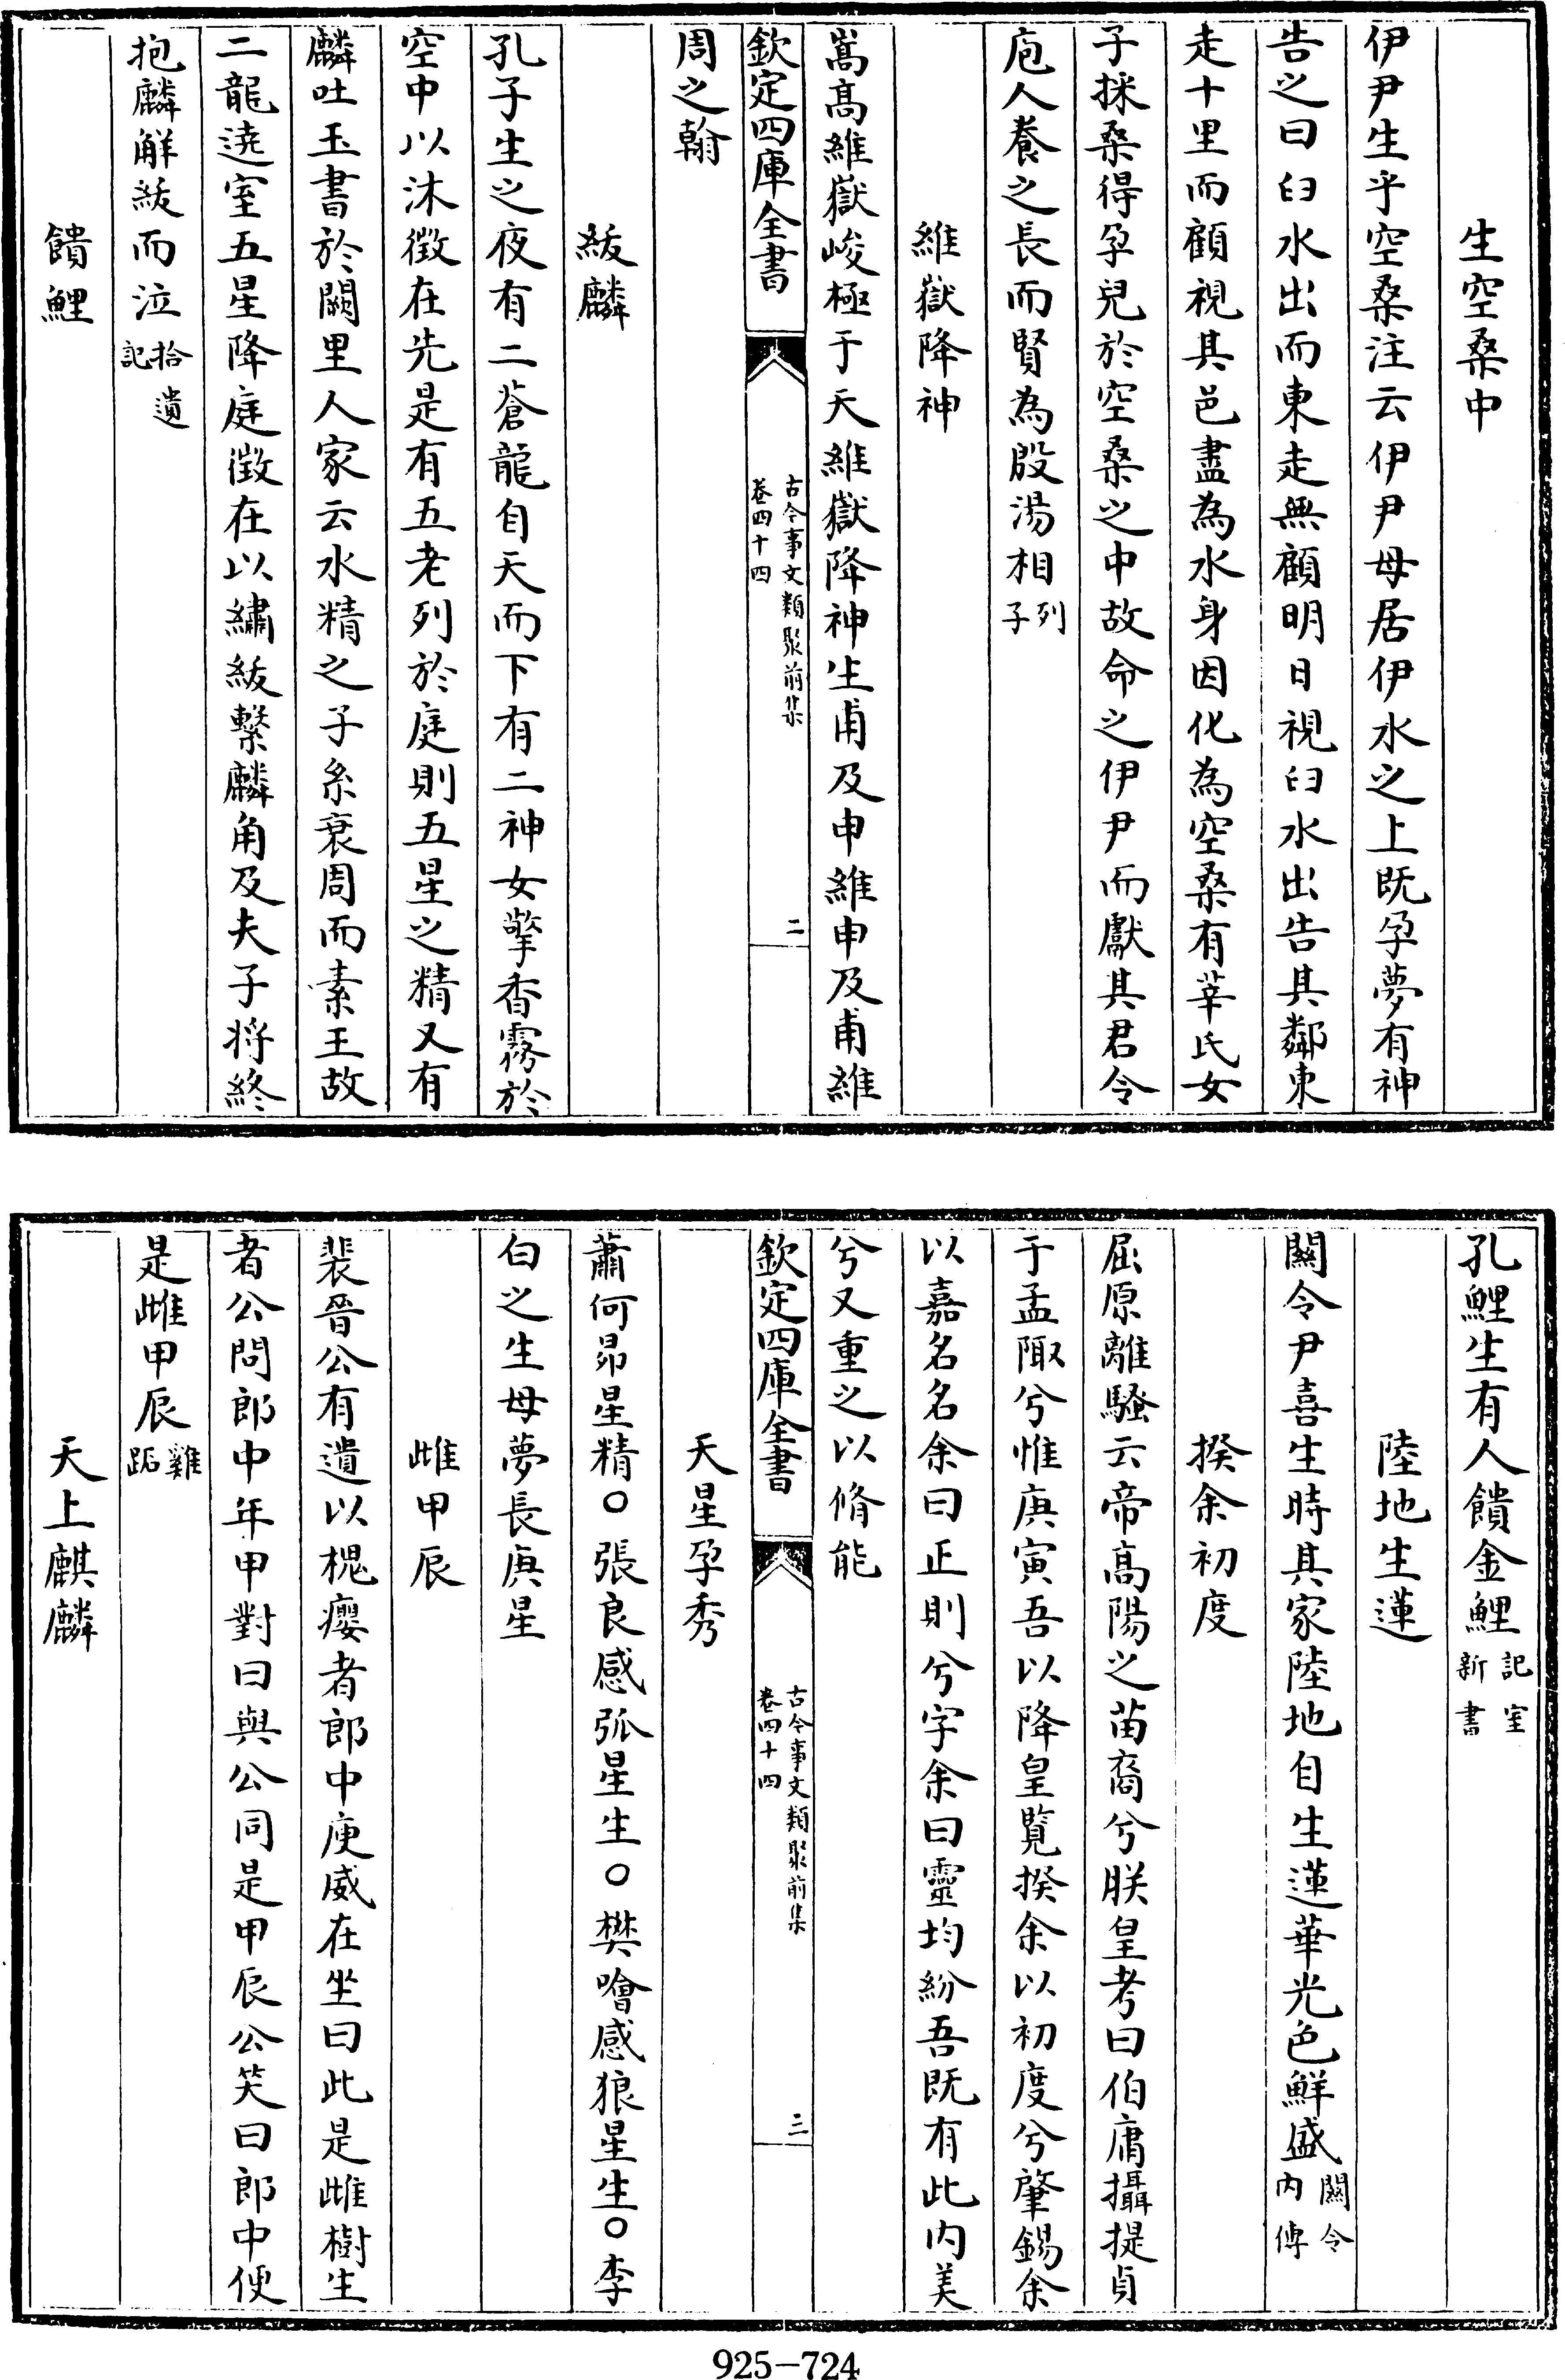 生空桑中
伊尹生乎空桑注云伊尹母居伊水之上既孕夢有神
告之曰臼水出而東走無顧明日視臼水出告其鄰東
走十里而顧視其邑盡為水身因化為空桑有莘氏女
子採桑得孕兒於空桑之中故命之伊尹而獻其君令
庖人養之長而賢為殷湯相列子
維嶽降神
嵩高維嶽峻極于天維嶽降神生甫及申維申及甫維
欽定四庫全書
古今事文類聚前集
卷四十四
二
周之翰
紱麟
孔子生之夜有二蒼龍自天而下有二神女擎香霧於
空中以沐徵在先是有五老列於庭則五星之精又有
麟吐玉書於闕里人家云水精之子糸衰周而素王故
二龍遶室五星降庭徵在以繡紱繫麟角及夫子將終
抱麟解紱而泣拾遺記
饋鯉
孔鯉生有人饋金鯉記室新書
陸地生蓮
關令尹喜生時其家陸地自生蓮華光色鮮盛關令內傳
揆余初度
屈原離騷云帝高陽之苗裔兮朕皇考曰伯庸攝提貞
于孟陬兮惟庚寅吾以降皇覽揆余以初度兮肇錫余
以嘉名名余曰正則兮字余曰靈均紛吾既有此內美
兮又重之以脩能
欽定四庫全書
古今事文類聚前集
卷四十四
三
天星孕秀
蕭何昴星精○張良感弧星生○樊噲感狼星生○李
白之生母夢長庚星
雌甲辰
裴晉公有遺以槐癭者郎中庾威在坐曰此是雌樹生
者公問郎中年甲對曰與公同是甲辰公笑曰郎中便
是雌甲辰雞跖
天上麒麟
925-724